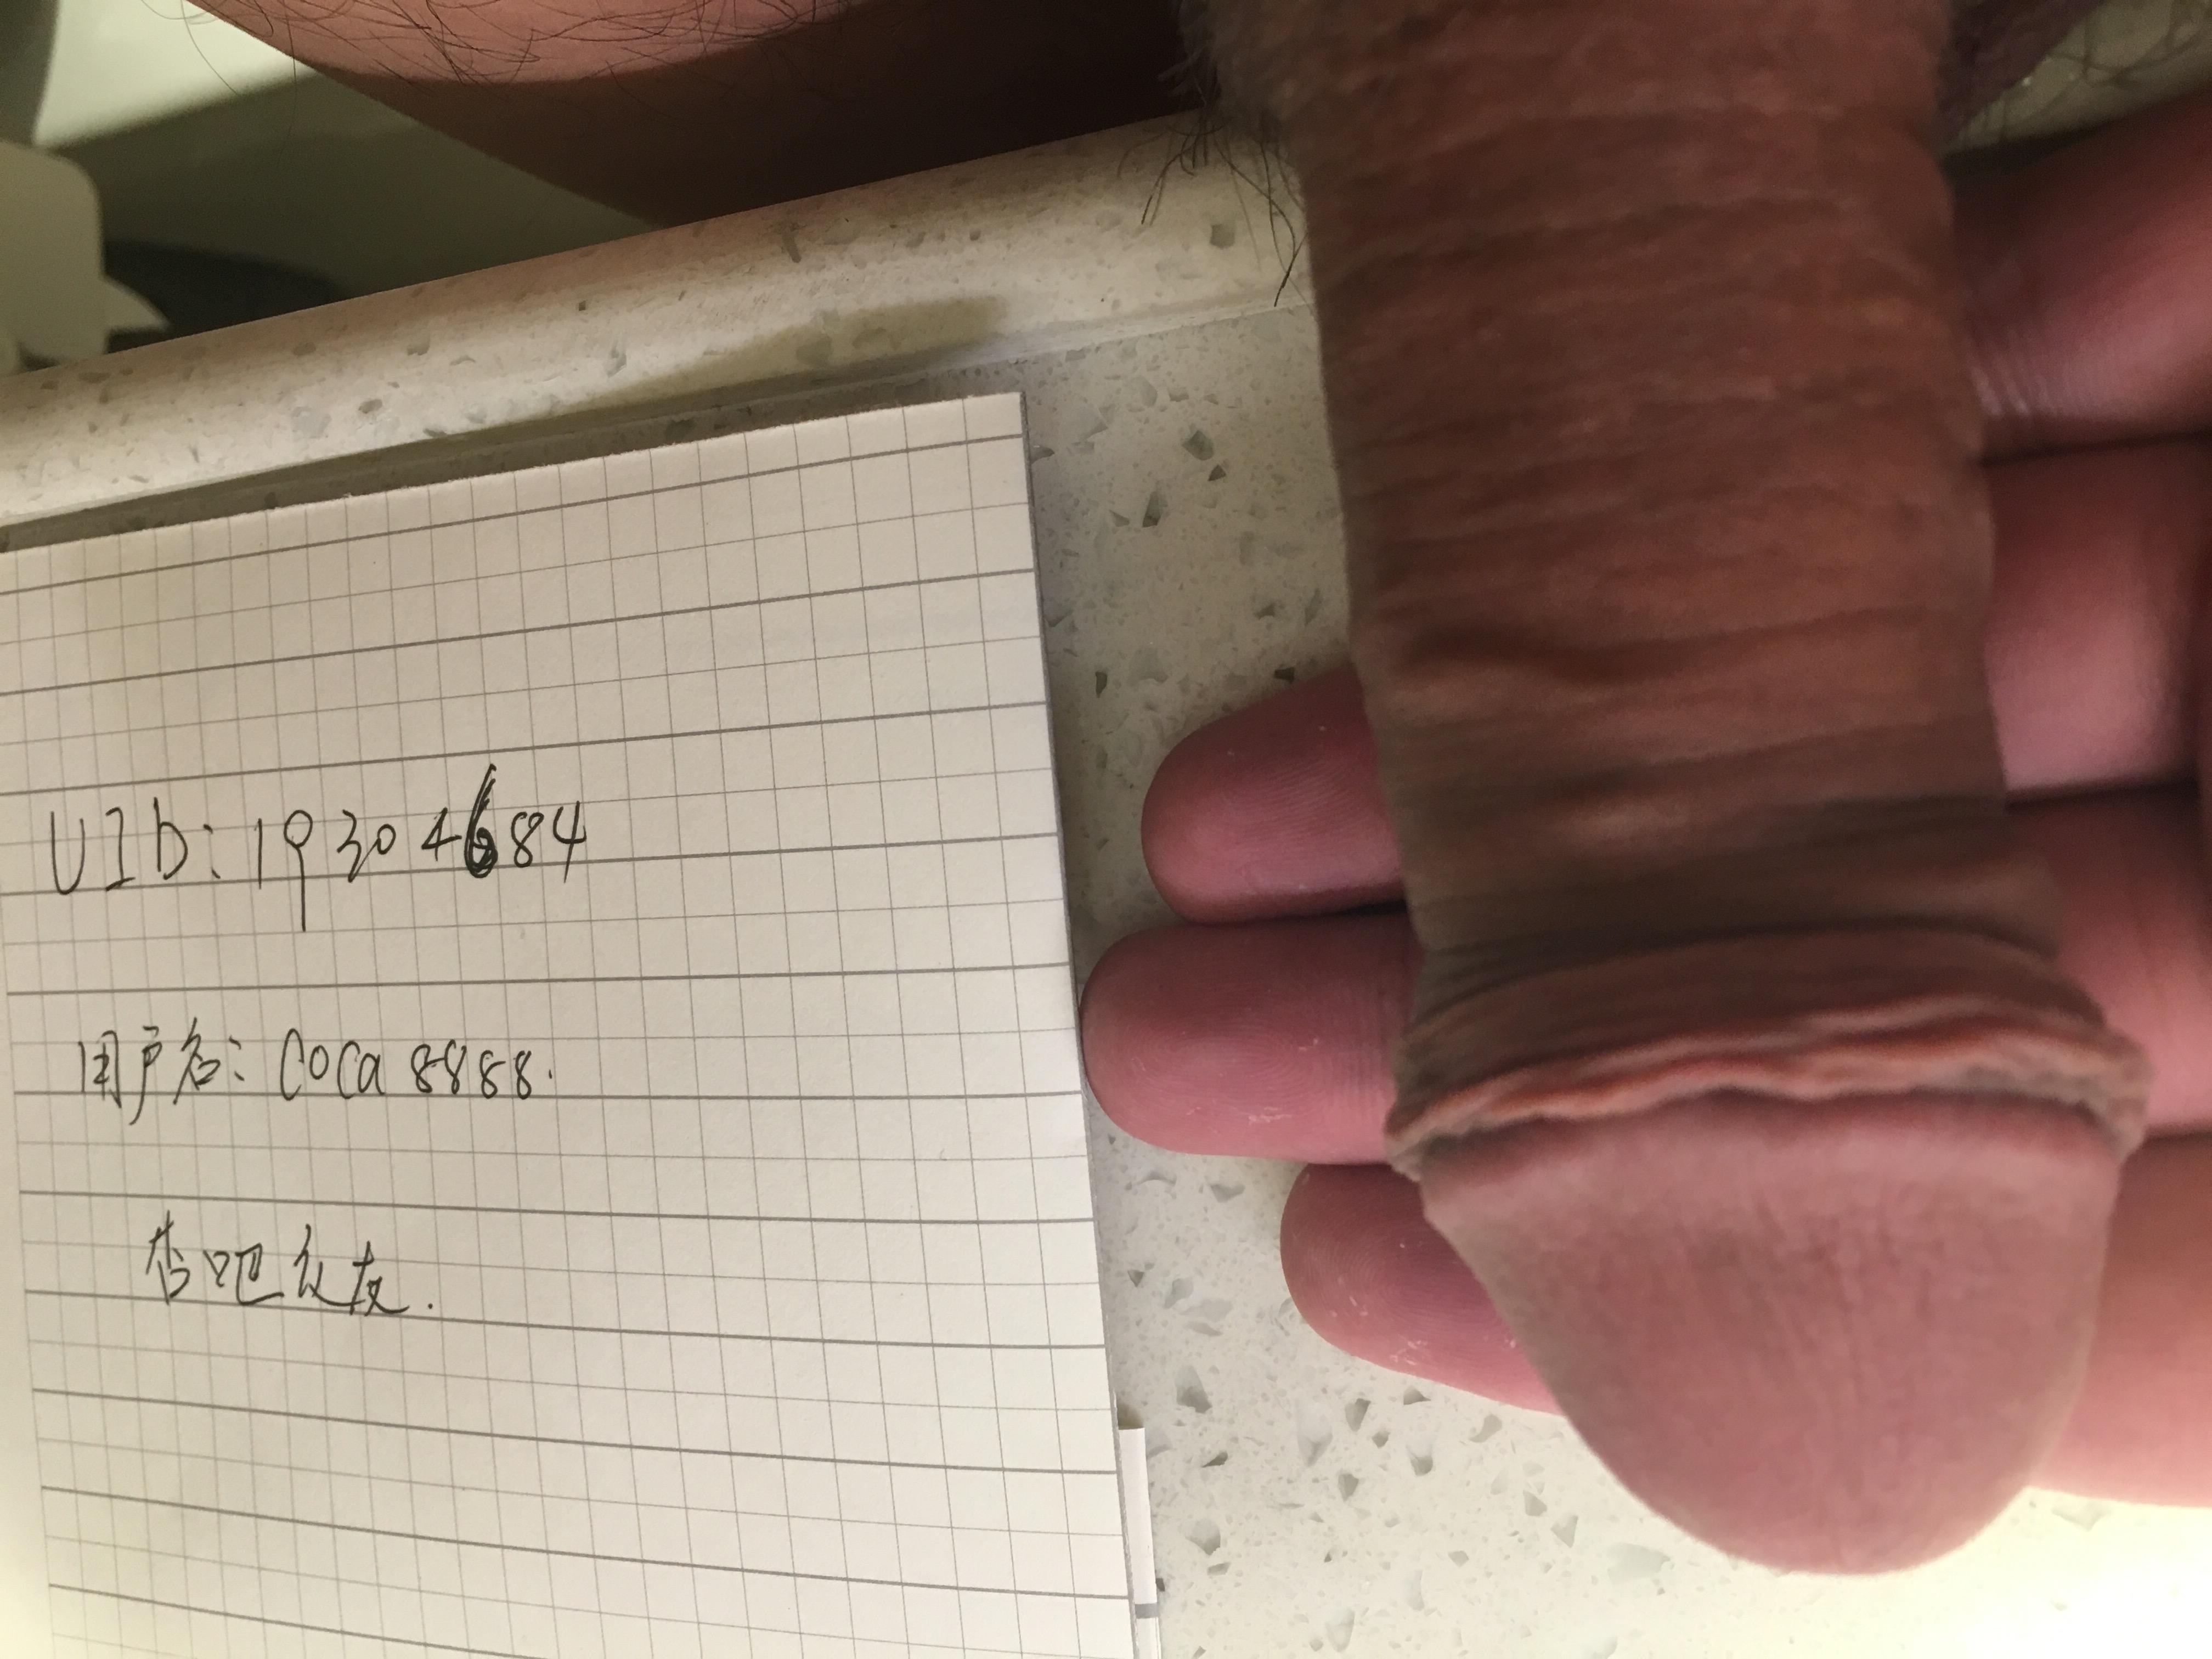 UID: 19304684
用户名: Coca 8888.
杏吧交友.